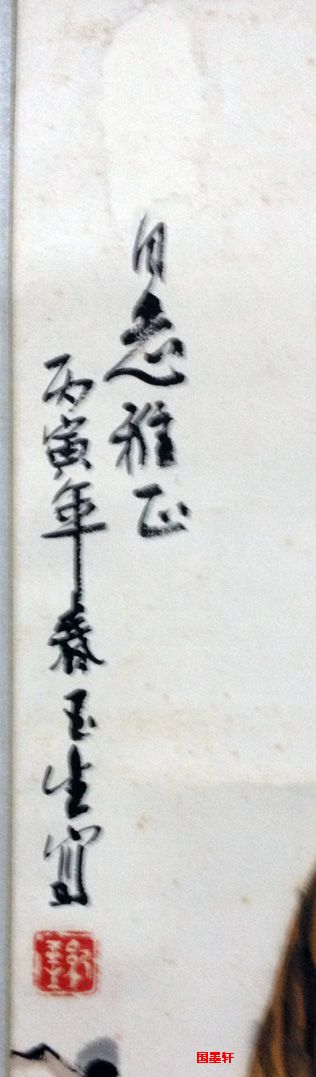 同志雅正
丙寅年春玉生写
国墨轩